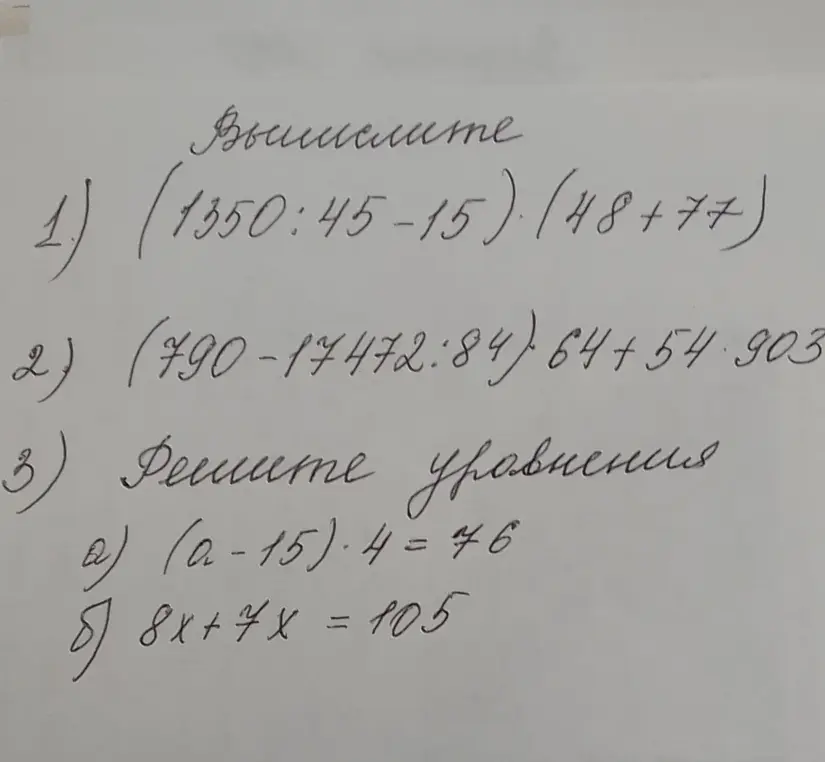 Вычислите
1) (1350:45-15)·(48+77)
2) (790-17472:84)·64+54·903
3) Решите уровнения
а) (а-15)·4=76
б) 8x+7x=105